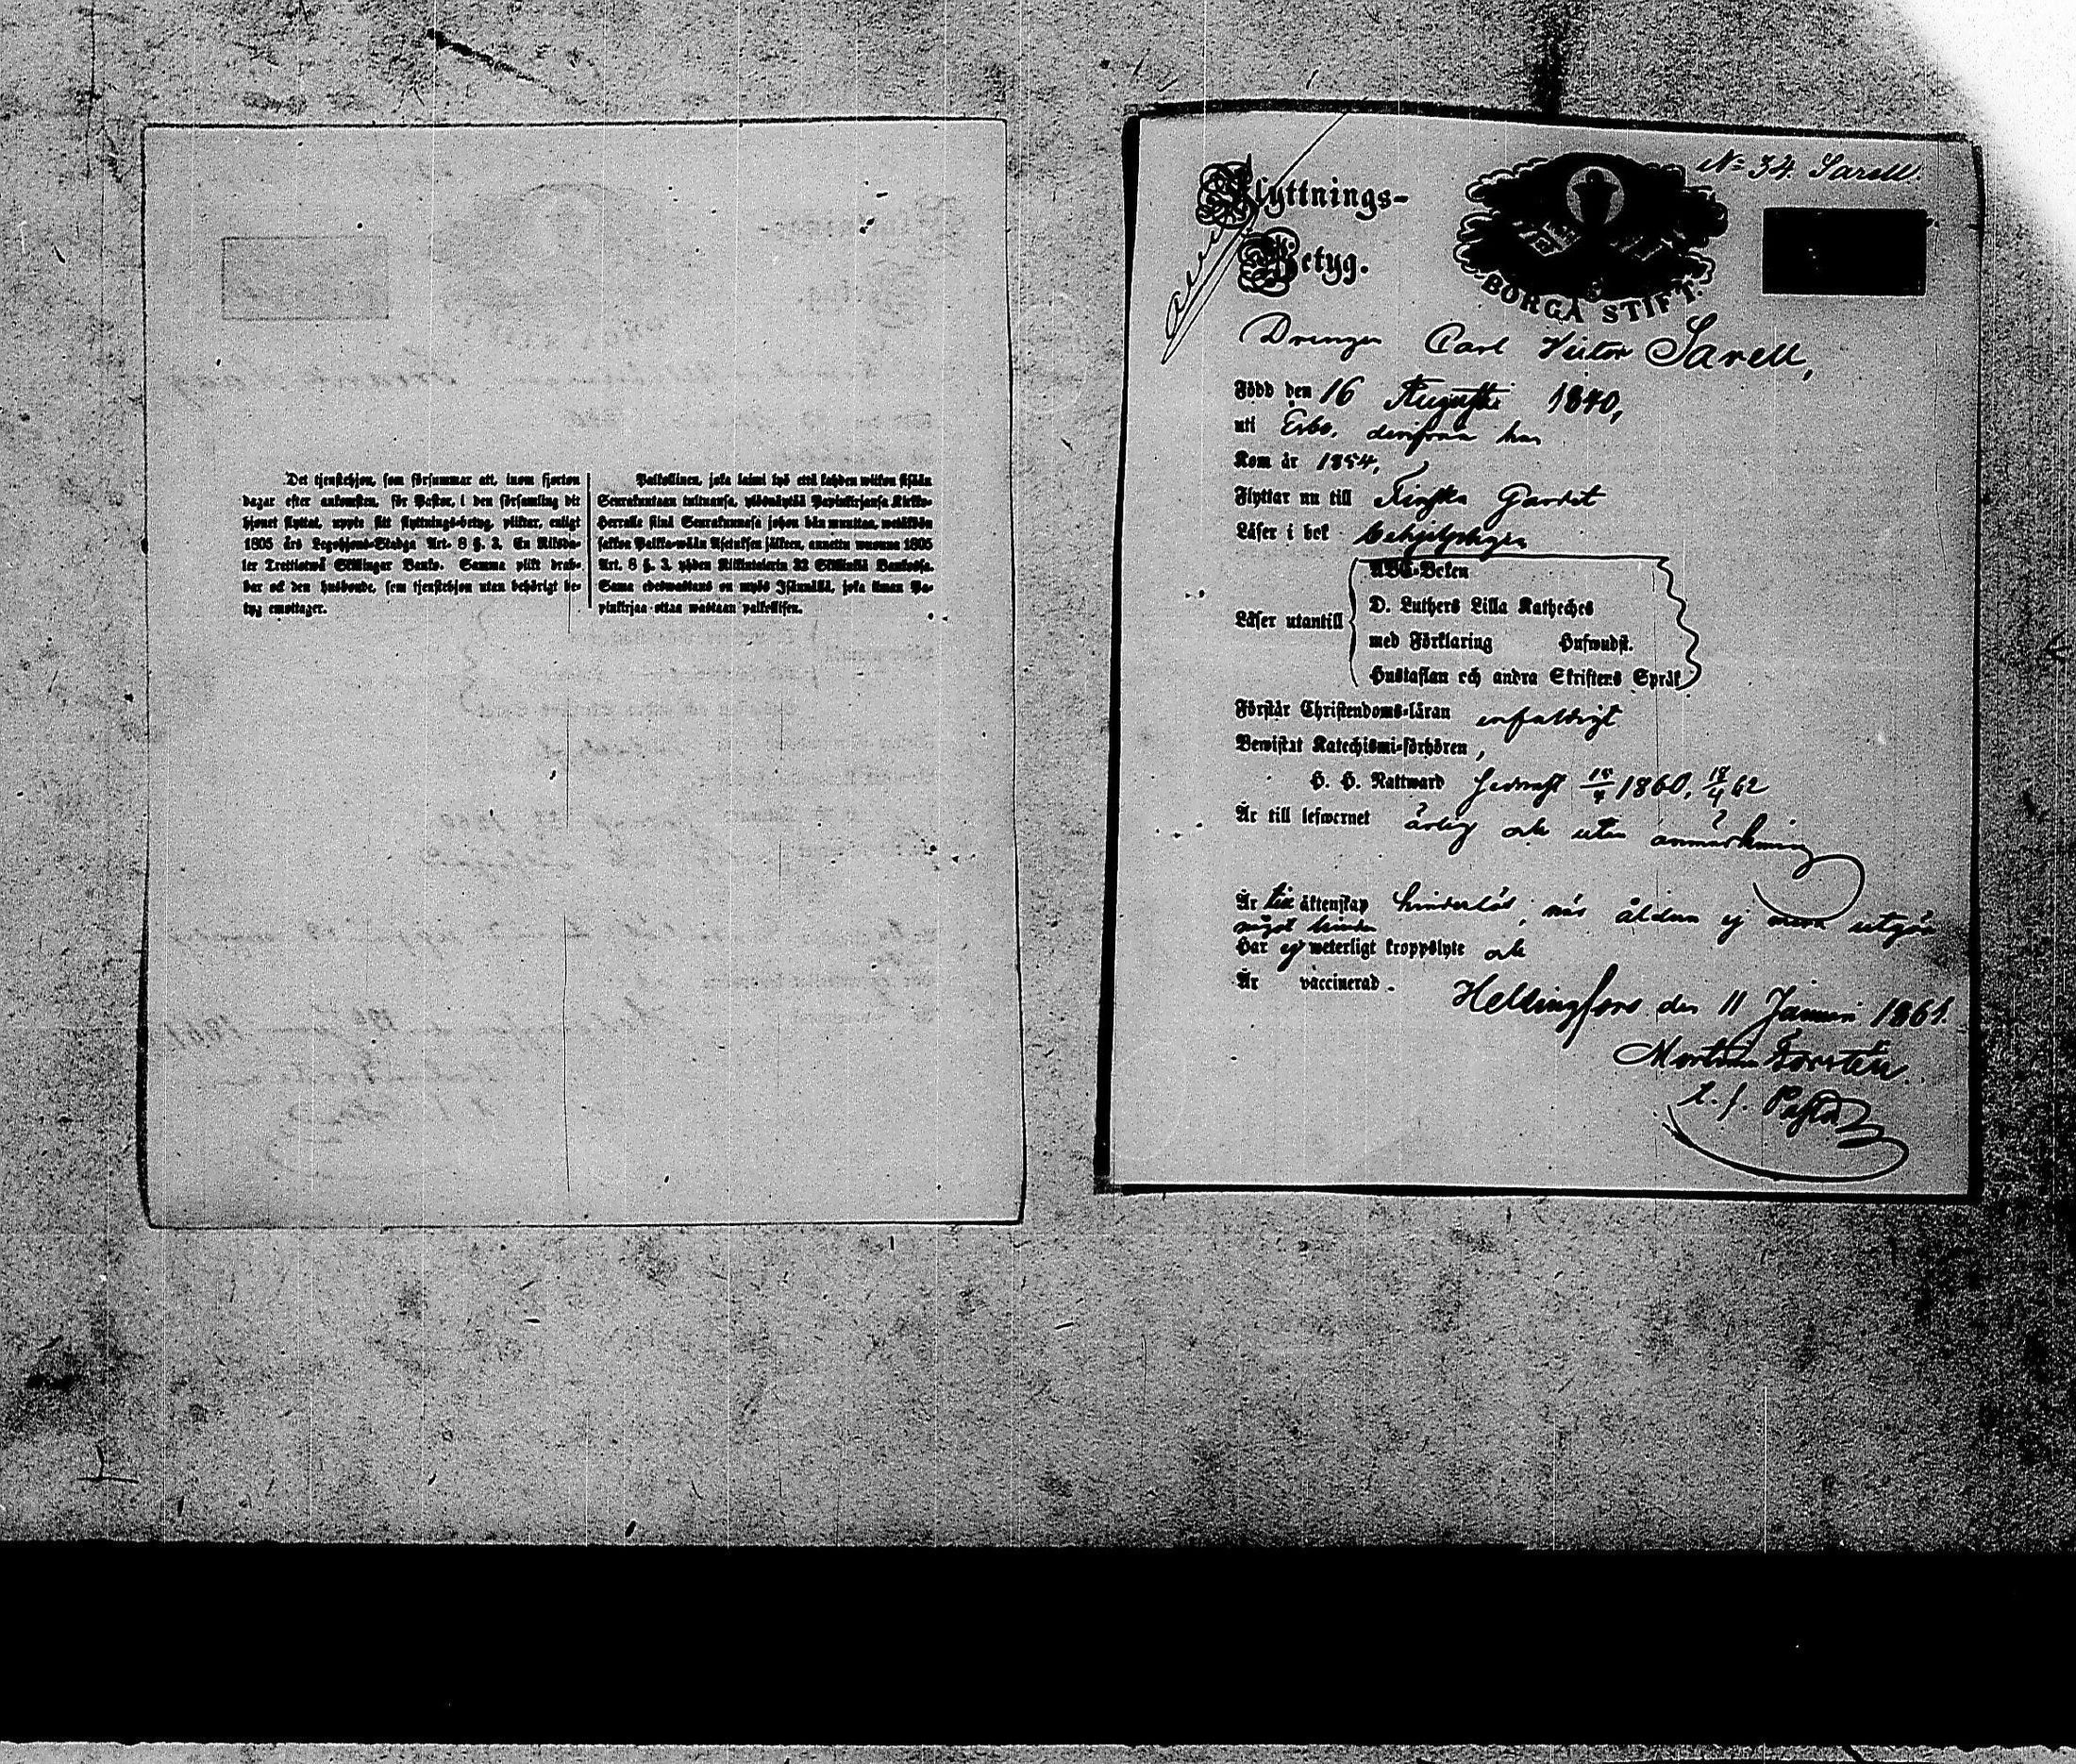 Det tjenstehjon, som försummar att, inom fjorton
dagar efter ankomsten, för Pastor, i den församling dit
hjonet flyttat, uppte sitt flyttnings-betyg, pliktar, enligt
1805 års Legohjons-Stadga Art. 8 §. 3. En Riksda-
ler Trettiotwå Skillinger Banko. Samma plikt drab-
bar ock den husbonde, som tjenstehjon utan behörigt be-
tyg emottager.
Palkollinen, joka laimi lyö että kahden wiikon sisään
Seurakuntaan tultuansa, ylösnäyttää Papinkirjansa Kirkko-
Herralle siinä Seurakunnasa johon hän muuttaa, wetäköön
sakkoa Palkka-wään Asetuksen jälkeen, annettu wuonna 1805
Art. 8 §. 3. yhden Riksintalerin 32 Skillinkiä Bankossa.
Sama edeswastaus on myös Isännällä, joka ilman Pa-
pinkirjaa ottaa wastaan palkollisen.
N:o 34. Sarell.
Flyttnings-
Betyg.
BORGÅ STIFT.
Drengen Carl Victor Sarell,
Född den 16 Augusti 1840,
uti Esbo, derifrån han
Kom år 1854,
Flyttar nu till Finska Gardet
Läser i bok behjelpligen
ABC-Boken
D. Luthers Lilla Katheches
Läser utantill
med Förklaring Hufwudst.
Hustaflan och andra Skriftens Språk
Förstår Christendoms-läran enfaldigt
Bewistat Katechismi-förhören,
H. H. Nattward 1860, 62
Är till lefwernet ärlig och utan anmärkning
Är till äktenskap hinderlös, når åldern ej mera utgör
något hinder
Har ej weterligt kroppslyte och
Är vaccinerad.
Helsingfors den 11 Januari 1861.
Forstén.
t. f. Pastor